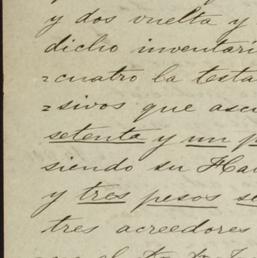 y dos vuelta y
dicho inventari
=cuatro la testa
=sivos que asc
setenta y un p
siendo su Ha
y tres pesos se
tres acreedores